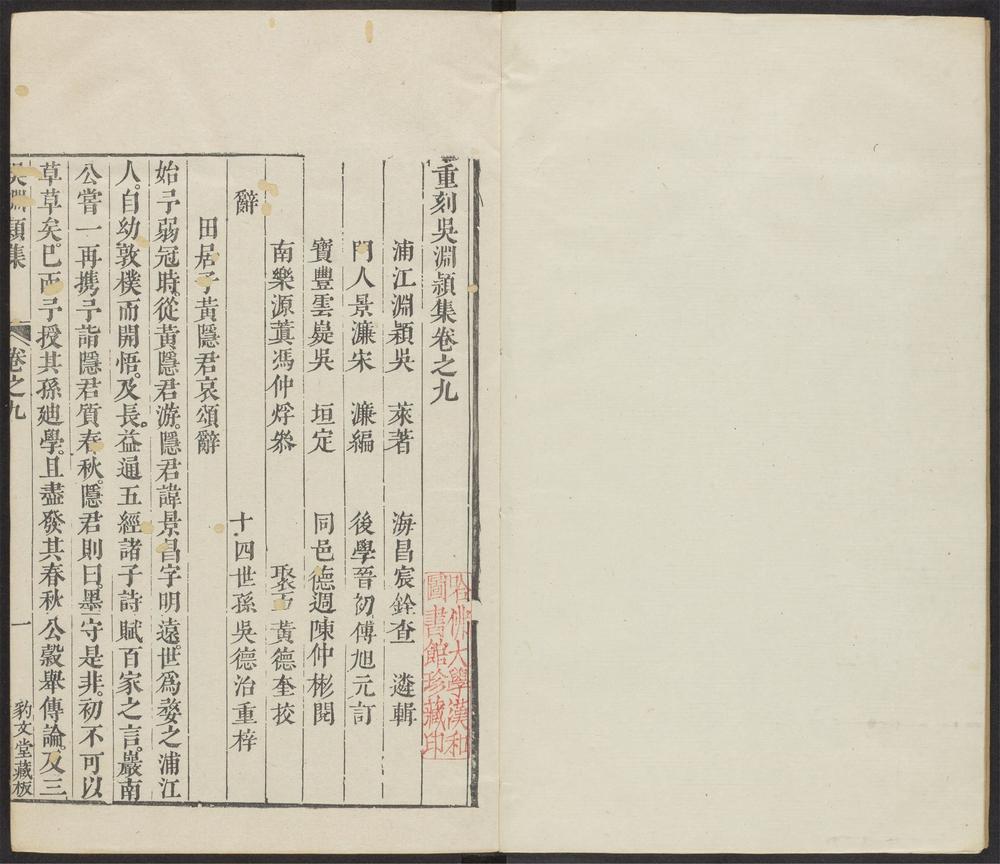 重刻吳淵穎集卷之九
浦江淵穎吳 萊著 海昌宸銓查 遴輯
門人景濂宋 濂編 後學晉初傅旭元訂
寶豐雲嶷吳 垣定 同邑德週陳仲彬閱
南樂源蓂馮仲烰叅 聚五黃德奎挍
十四世孫吳德治重梓
辭
田居子黃隱君哀頌辭
始予弱冠時。從黃隱君游。隱君諱景昌字明遠。世爲婺之浦江
人。自幼敦樸而開悟。及長。益通五經諸子詩賦百家之言。巖南
公嘗一再携予詣隱君質春秋。隱君則曰。墨守是非。初不可以
草草矣。巳而予授其孫廸學。且盡發其春秋公穀舉傳論。及三
吳淵穎集 卷之九 一 豹文堂藏板
哈佛大學漢和
圖書館珍藏印